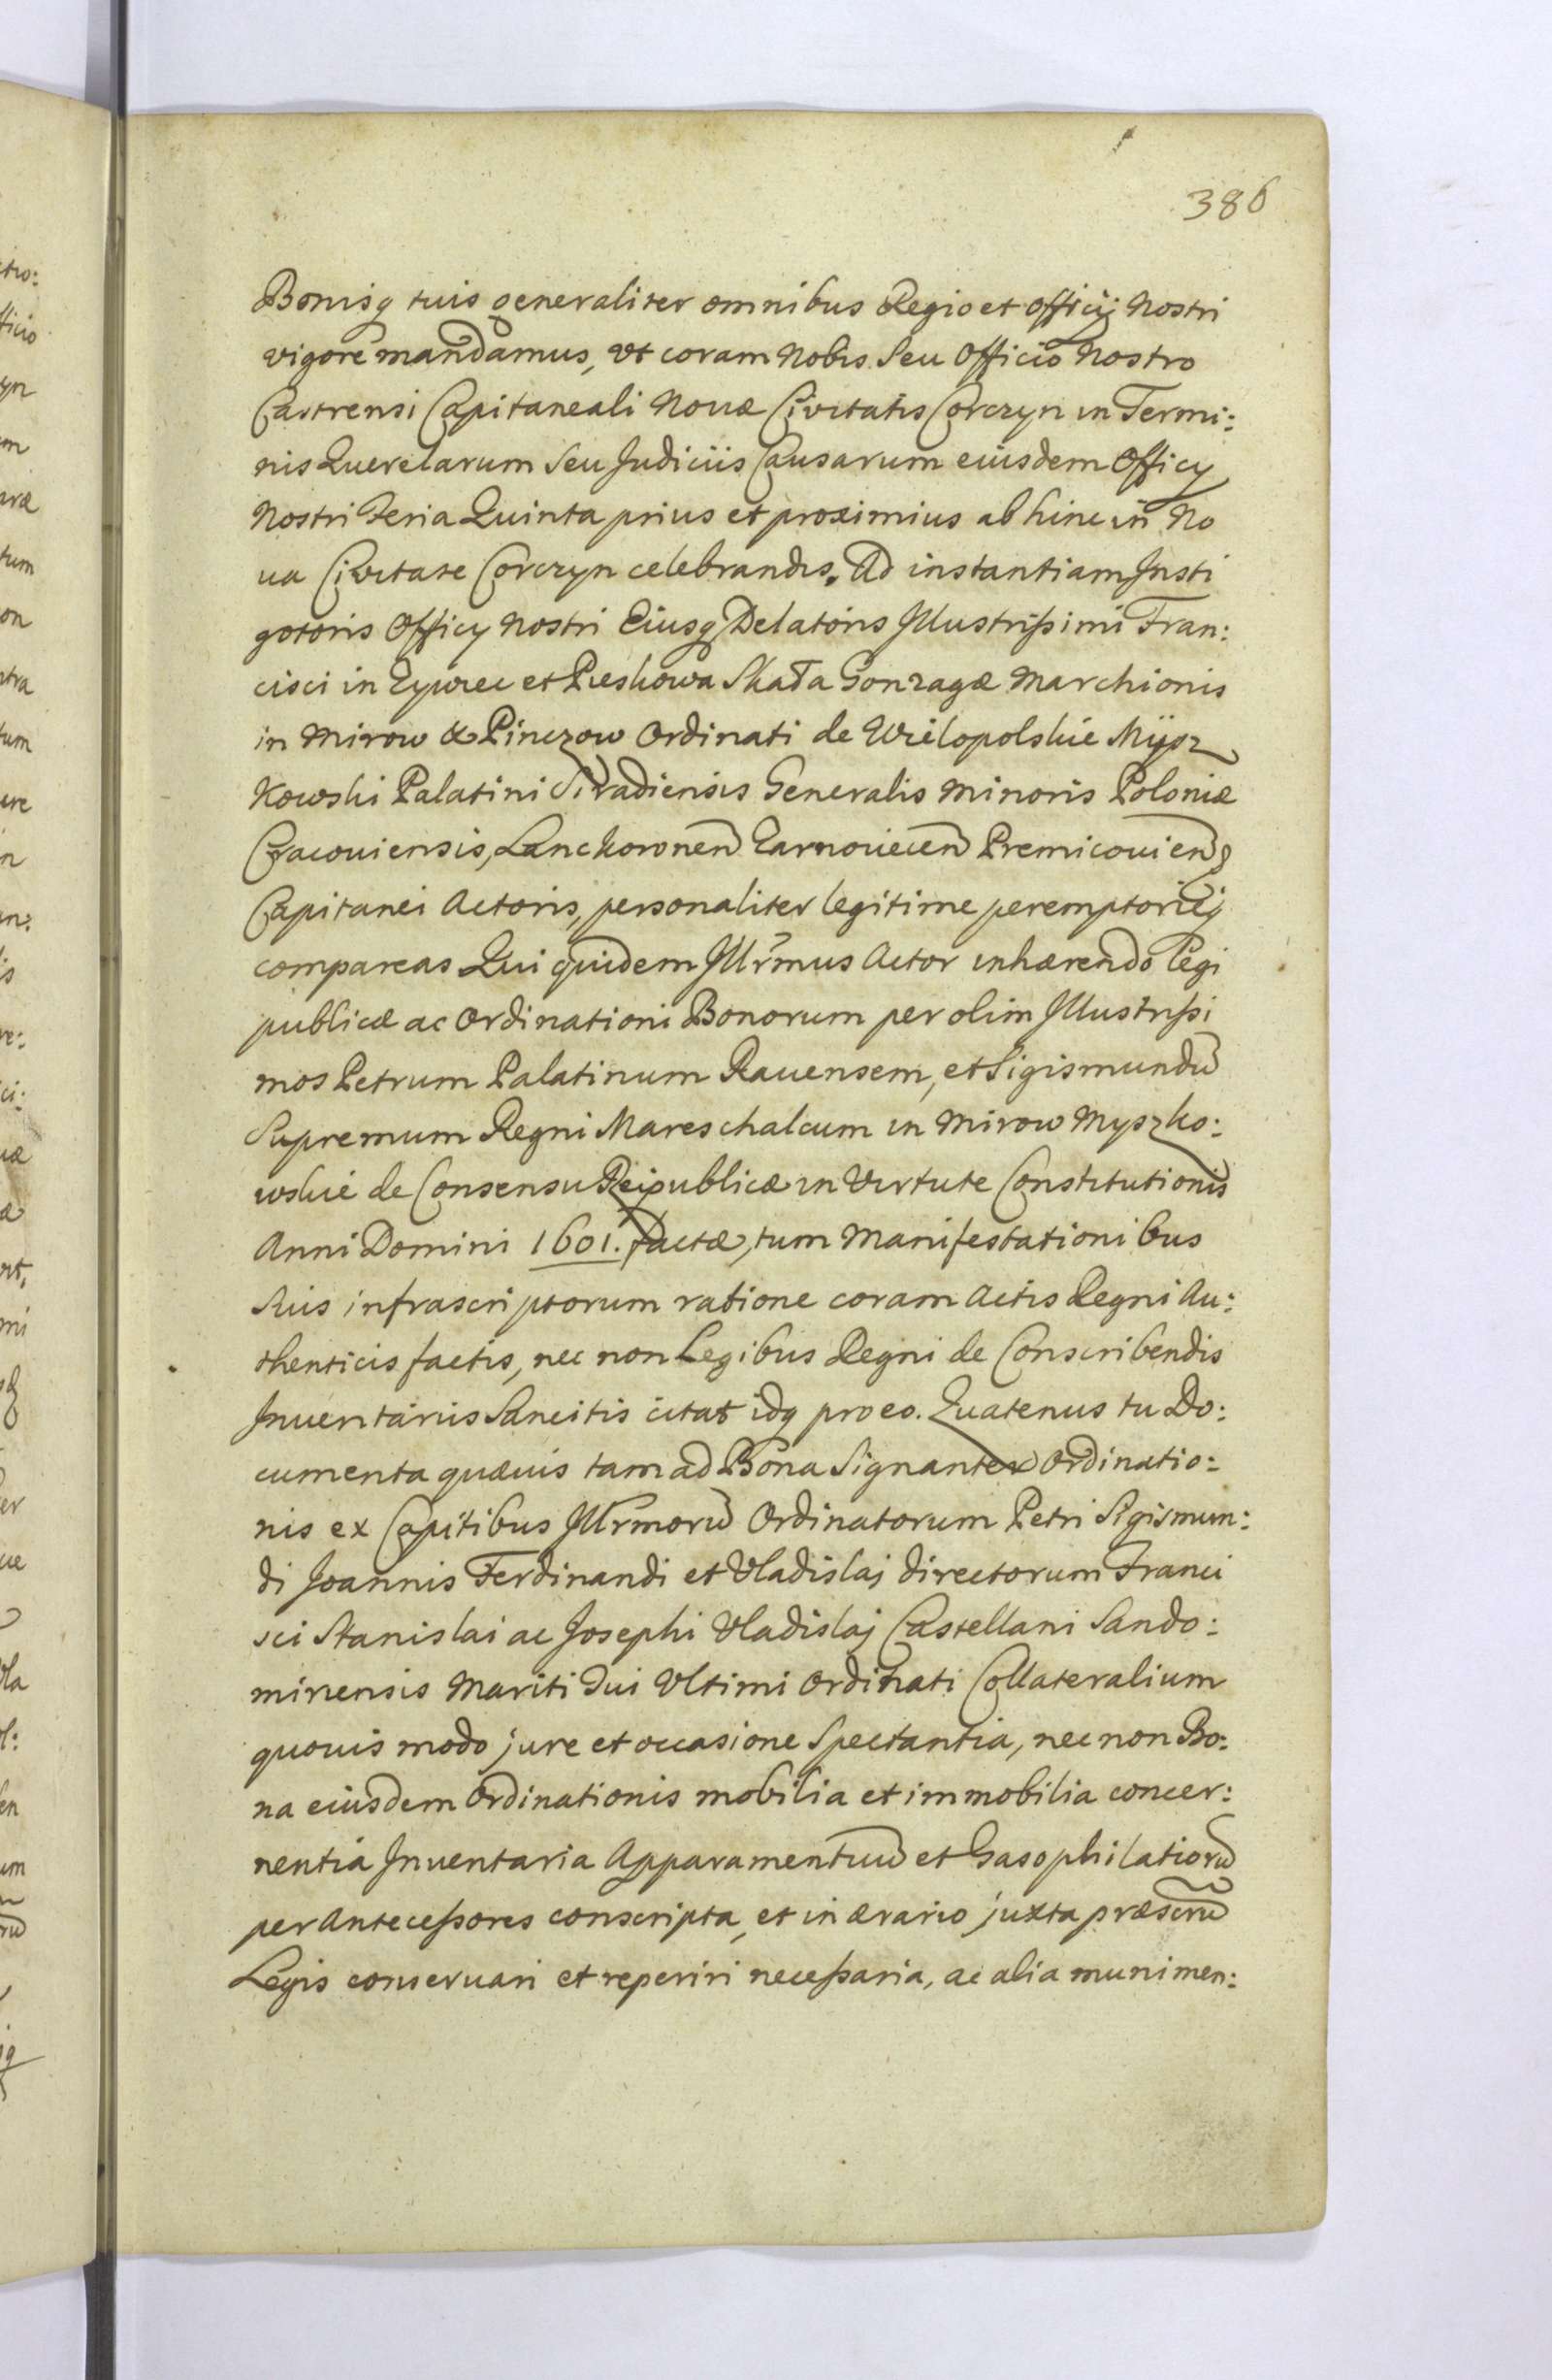 386
Bonisq tuis generaliter omnibus Regio et officij Nostri
vigore mandamus, vt coram Nobis Seu Officio Nostro
Castrensi Capitaneali Nouæ Civitatis Corczyn in Termi:
nis Querelarum Seu Judiciis Causarum eiusdem Officy
Nostri Feria Quinta prius et proximius ab hinc in No
ua Civitate Corczyn celebrandis. Ad instantiam Insti
gatoris Officy Nostri Eiusq Delatoris Illustrissimi Fran:
cisci in et Pieskowa Skała Gonzagæ Marchionis
in Mirow & Pinczow Ordinati de Wielopolskie Mysz
Kowski Palatini Siradiensis Generalis Minoris Poloniæ
Cracouiensis, Lanckoronen Premicouien
Capitanei Actoris, personaliter legitime peremptorieq
compareas Qui quidem Illrmus Actor inhærendo Legi
publicæ ac Ordinationi Bonorum per olim Illustrissi
mos Petrum Palatinum Rauensem, et Sigismundu
Supremum Regni Mareschalcum in Mirow Myszko:
wskie de Consensu Reipublicæ in Virtute Constitutionis
Anni Domini 1601. factæ, tum Manifestationibus
Suis infrascriptorum ratione coram Actis Regni Au:
thenticis factis, nec non Legibus Regni de Conscribendis
Inuentariis Sancitis citat idq pro eo. Quatenus tu Do:
cumenta quæuis tam ad Bona Signanter Ordinatio:
nis ex Capitibus Illrmoru Ordinatorum Petri Sigismun:
di Joannis Ferdinandi et Vladislaj directorum Franci
sci Stanislai ac Josephi Vladislaj Castellani Sando:
miriensis Mariti Tui Vltimi Ordinati Collateralium
quouis modo jure et occasione Spectantia, nec non Bo:
na eiusdem Ordinationis mobilia et immobilia concer:
nentia Inuentaria Apparamentuu et Gasophilatioru
per Antecessores conscripta, et in ærario juxta
Legis conseruari et reperiri necessaria, ac alia munimen: